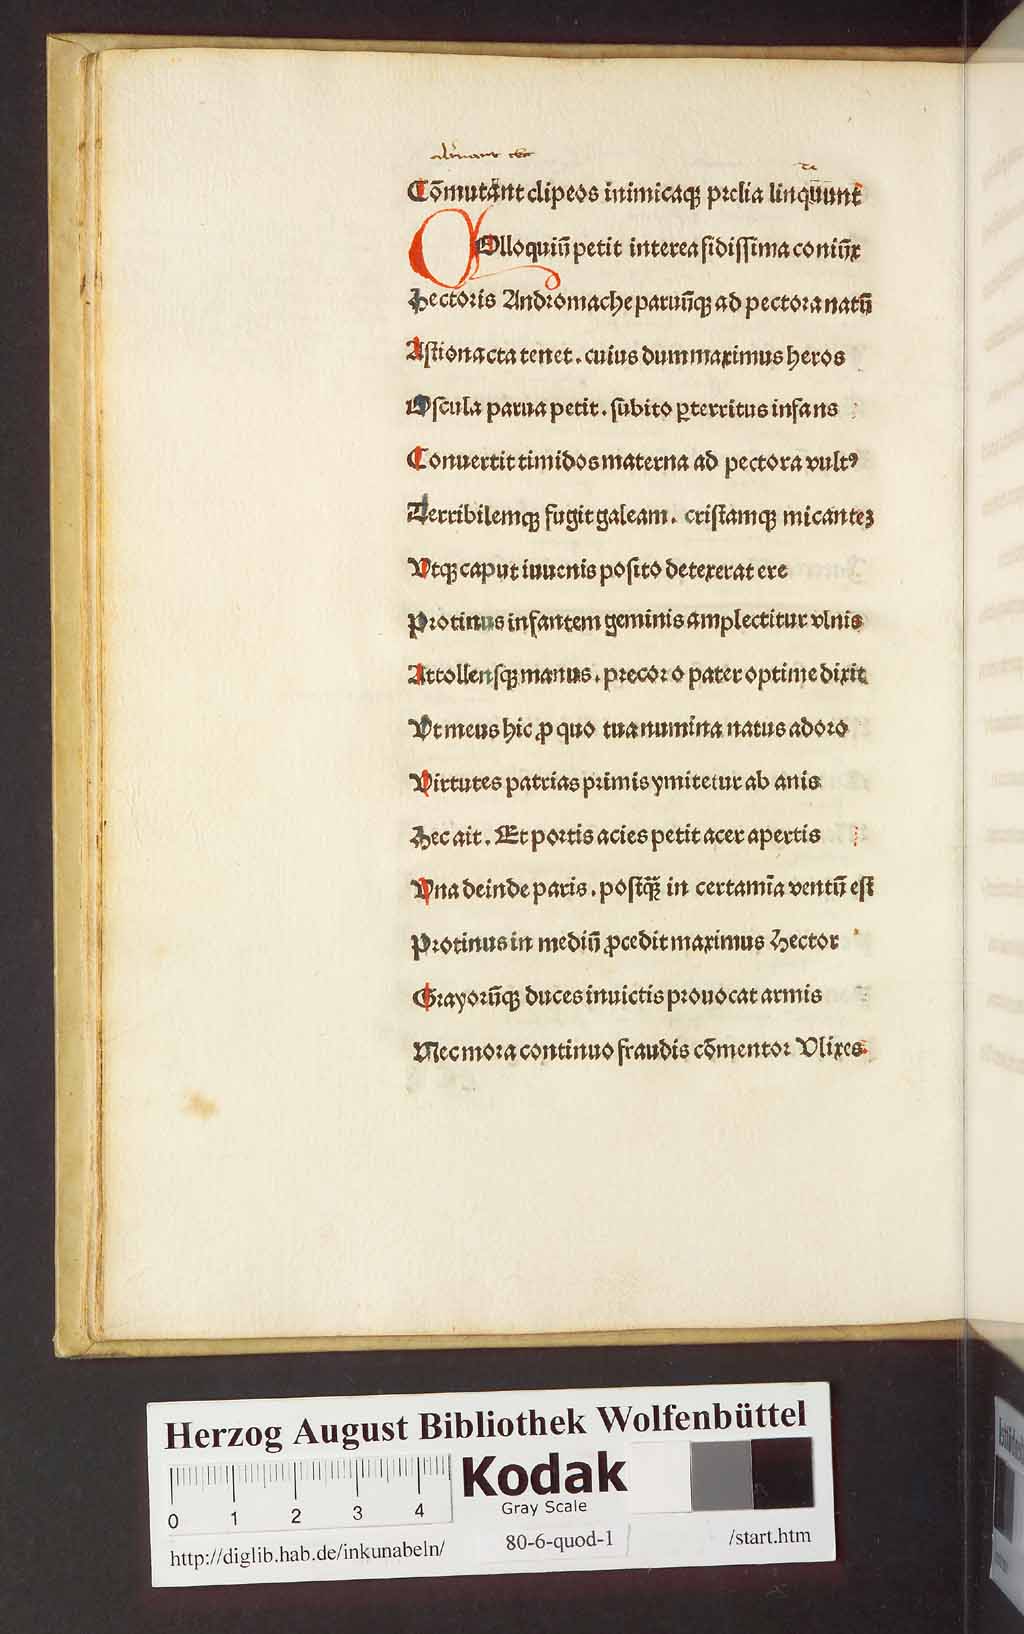 Cōmutant clipeos inimicaqꝫ prelia linquunt
Olloquiū petit interea fidissima coniūx
Hectoris Andromache paruūqꝫ ad pectora natū
Astionacta tenet . cuius dum maximus heros
Oscula parua petit . subito ꝑterritus infans
Conuertit timidos materna ad pectora vultꝰ
Terribilemqꝫ fugit galeam . cristamqꝫ micanteꝫ
Vtqꝫ caput iuuenis posito detexerat ere
Protinus infantem geminis amplectitur vlnis
Attollensqꝫ manus . precor o pater optime dixit
Vt meus hic ꝓ quo tua numina natus adoro
Virtutes patrias primis ymitetur ab anis
Hec ait . Et portis acies petit acer apertis
Vna deinde paris . postq̄ꝫ in certamīa ventū est
Protinus in mediū ꝓcedit maximus Hector
Grayorūqꝫ duces inuictis prouocat armis
Nec mora continuo fraudis cōmentor Vlixes
Herzog August Bibliothek Wolfenbüttel
Kodak
Gray Scale
0 1 2 3 4
http://diglib.hab.de/inkunabeln/ 80-6-quod-1 /start.htm